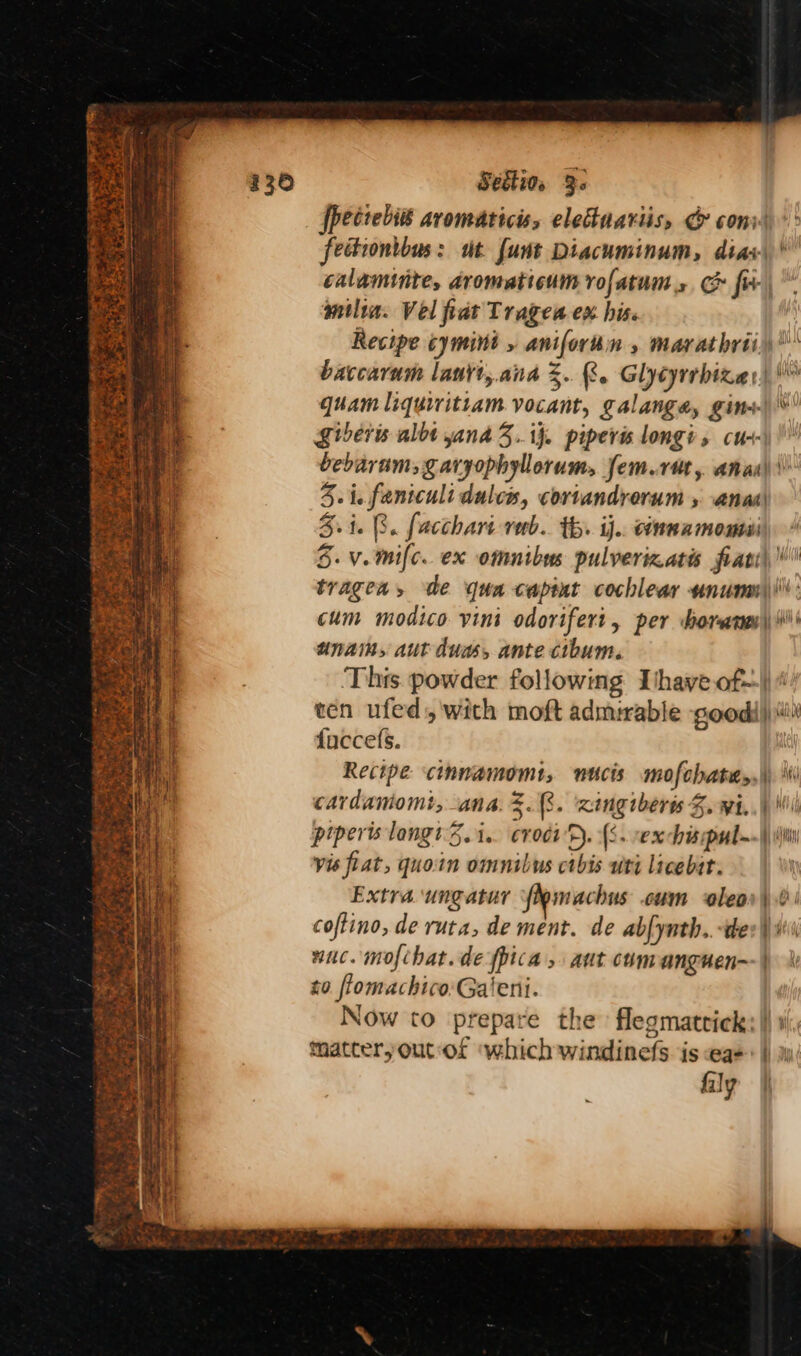 130 Sectio. 3.
ſpeciebus aromaticis, electuariis, & con-
fectionibus: ut ſunt Diacuminum, dia-
calaminte, aromaticum roſatum, & ſi-
milia. Vel fiat Tragea ex his.
Recipe cymini, aniſorum, marathrii,
baccarum lauri, ana ʒ. ß. Glycyrrhizæ,
quam liquiritiam vocant, galangæ, gin-
giberis albi, ana ʒ. ij. piperis longi, cu-
bebarum, garyophyllorum, ſem. rut, ana
ʒ. i. fæniculi dulcis, coriandrorum, ana
ʒ. i. ß. ſacchari rub. ℔. ij. cinnamomi
ʒ. v. miſc. ex omnibus pulverizatis fiat
tragea, de qua capiat cochlear unum
cum modico vini odoriferi, per horam
unam, aut duas, ante cibum.
This powder following I have of-
ten uſed, with moſt admirable good
ſucceſs.
Recipe cinnamomi, nucis moſchatæ,
cardamomi, ana. ʒ. ß. zingiberis ʒ. vi.
piperis longi ʒ. i. croci ℈. ß. ex his pul-
vis fiat, quo in omnibus cibis uti licebit.
Extra ungatur ſtomachus cum oleo
coſtino, de ruta, de ment. de abſynth. de
nuc. moſchat. de ſpica, aut cum anguen-
to ſtomachico Galeni.
Now to prepare the flegmattick
matter, out of which windineſs is ea-
ſily